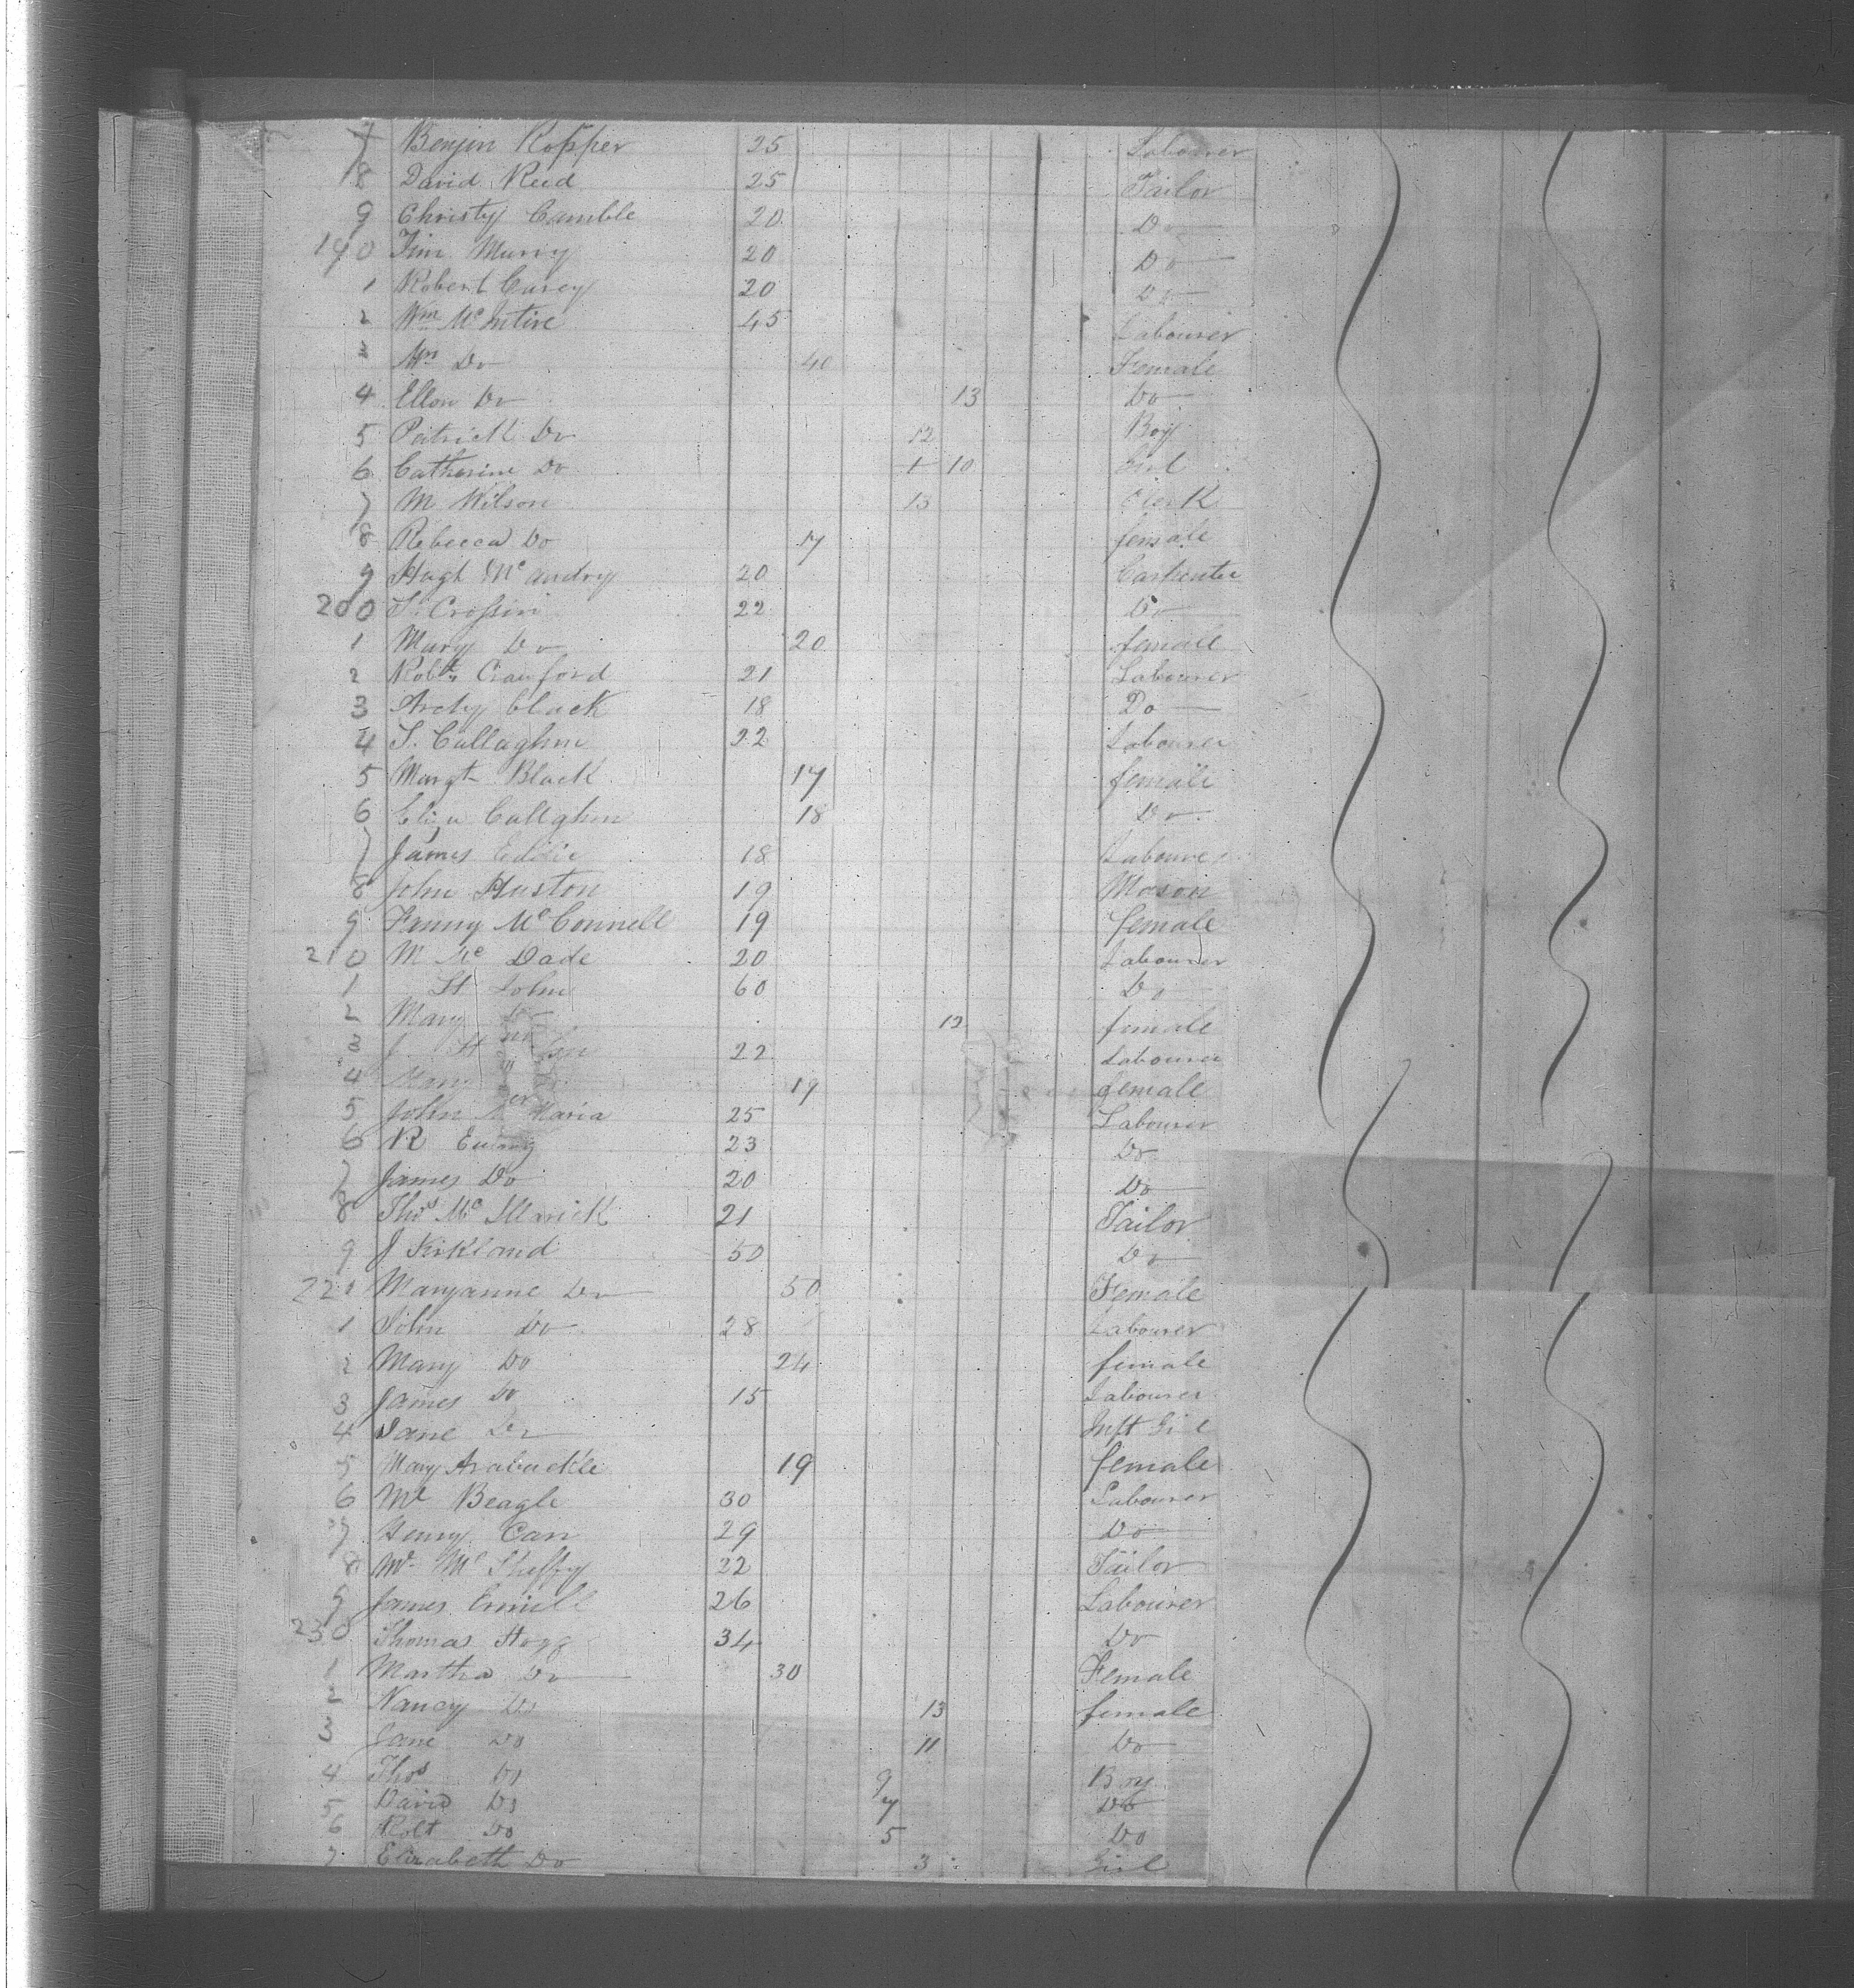 7 Benjin Ropper 25 Labourer
8 David Reed 25 Tailor
9 Christy Camble 20 Do
190 Jim Murry 20 Do
1 Robert Carey 20 Do
2 Wm McIntire 45 Labourer
3 Mrs Do 40 Female
4 Ellen Do 13 Do
5 Patrick Do 12 Boy
6 Catherine Do 10 Girl
7 M Wilson 13 Clerk
8 Rebecca Do 17 female
9 Hugh McAndry 20 Carpenter
200 Crossin 22 Do
1 Mary Do 20 female
2 Robt Crawford 21 Labourer
3 Archy black 18 Do
4 S. Callaghn 22 Labourer
5 Margt Black 17 female
6 Eliza Callghn 18 Do
7 James Eddie 18 Labourer
8 John Huston 19 Mason
9 Fanny McConnell 19 female
210 M Mc Dade 20 Labourer
1 St John 60 Do
2 Mary Do 12 female
3 J St 22 Labourer
4 Mary 19 female
5 John Maria 25 Labourer
6 R Ewing 23 Do
7 James Do 20 Do
8 Thos Mc 21 Tailor
9 J Kirkland 50 Do
221 Maryanne Do 50 Female
1 John Do 28 Labourer
2 Mary Do 24 female
3 James Do 15 Labourer
4 Jane Do Inft Girl
5 Mary Arabuckle 19 female
6 Beagle 30 Labourer
7 Henry Carr 29 Do
8 Mc Sheffry 22 Tailor
9 James 26 Labourer
230 Thomas Hogg 34 Do
1 Martha Do 30 Female
2 Nancy Do 13 female
3 Jane Do 11 Do
4 Thos Do 9 Boy
5 David Do 7 Do
6 Robt Do 5 Do
7 Elizabeth Do 3 Girl